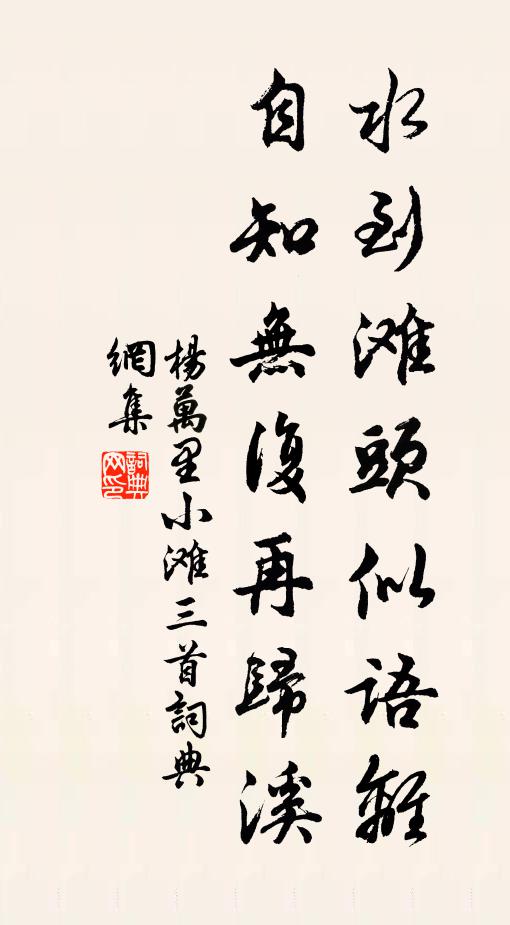 水到滩頭似語離
自知無復再歸溪
楊萬里小滩三首詞典
網集
詞典
网印